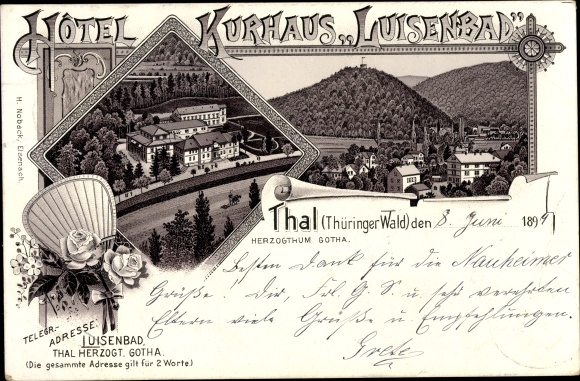 HÔTEL KURHAUS „LUISENBAD"
H. Noback, Eisenach.
Thal (Thüringer Wald) den 8. Juni 189
HERZOGTHUM GOTHA.
Besten Dank für die Nauheimer
Grüße! Dir, Frl. G. S. u. sehr verehrten
Eltern viele Grüße u. Empfehlungen.
Grete.
TELEGR.-
ADRESSE:
LUISENBAD,
THAL HERZOGT. GOTHA.
(Die gesammte Adresse gilt für 2 Worte.)